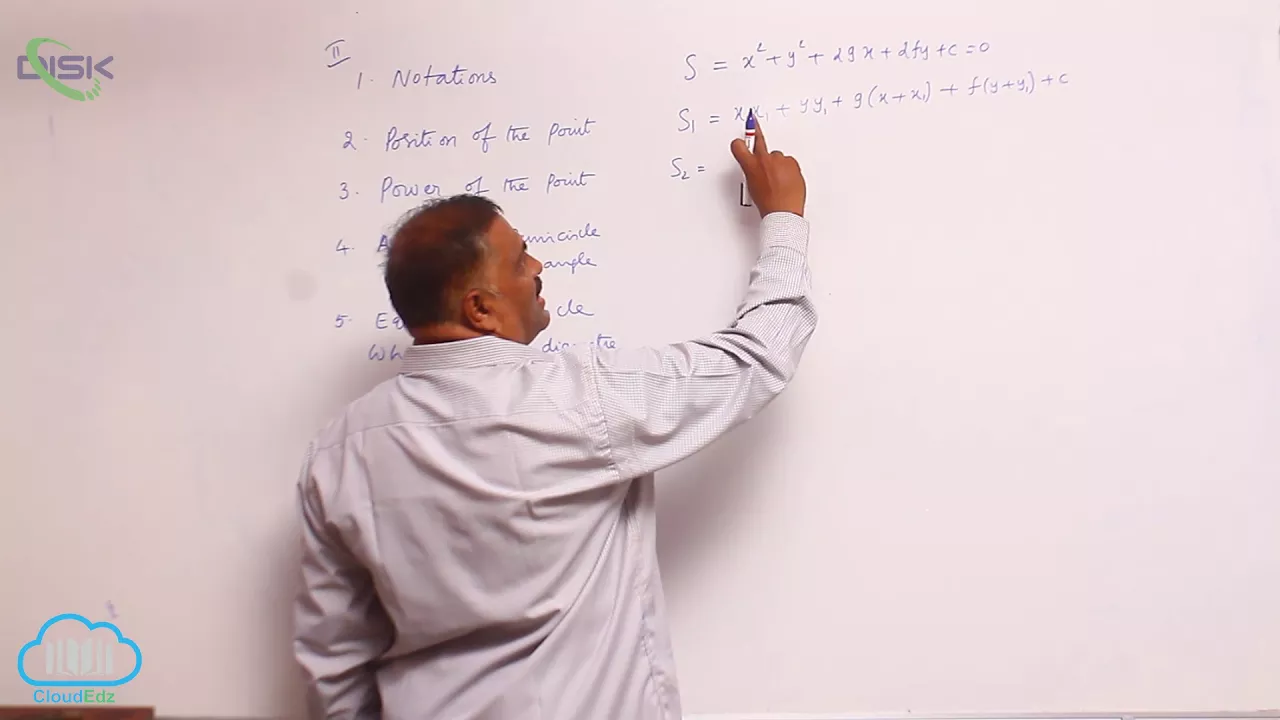 DISK
II
1. Notations
2. Position of the point
3. Power of the point
4. A
angle
5. E
cle
Wh
S = x² + y² + 2gx + 2fy + c = 0
S₁ = xx₁ + yy₁ + g(x + x₁) + f(y + y₁) + c
S₂ =
CloudEdz